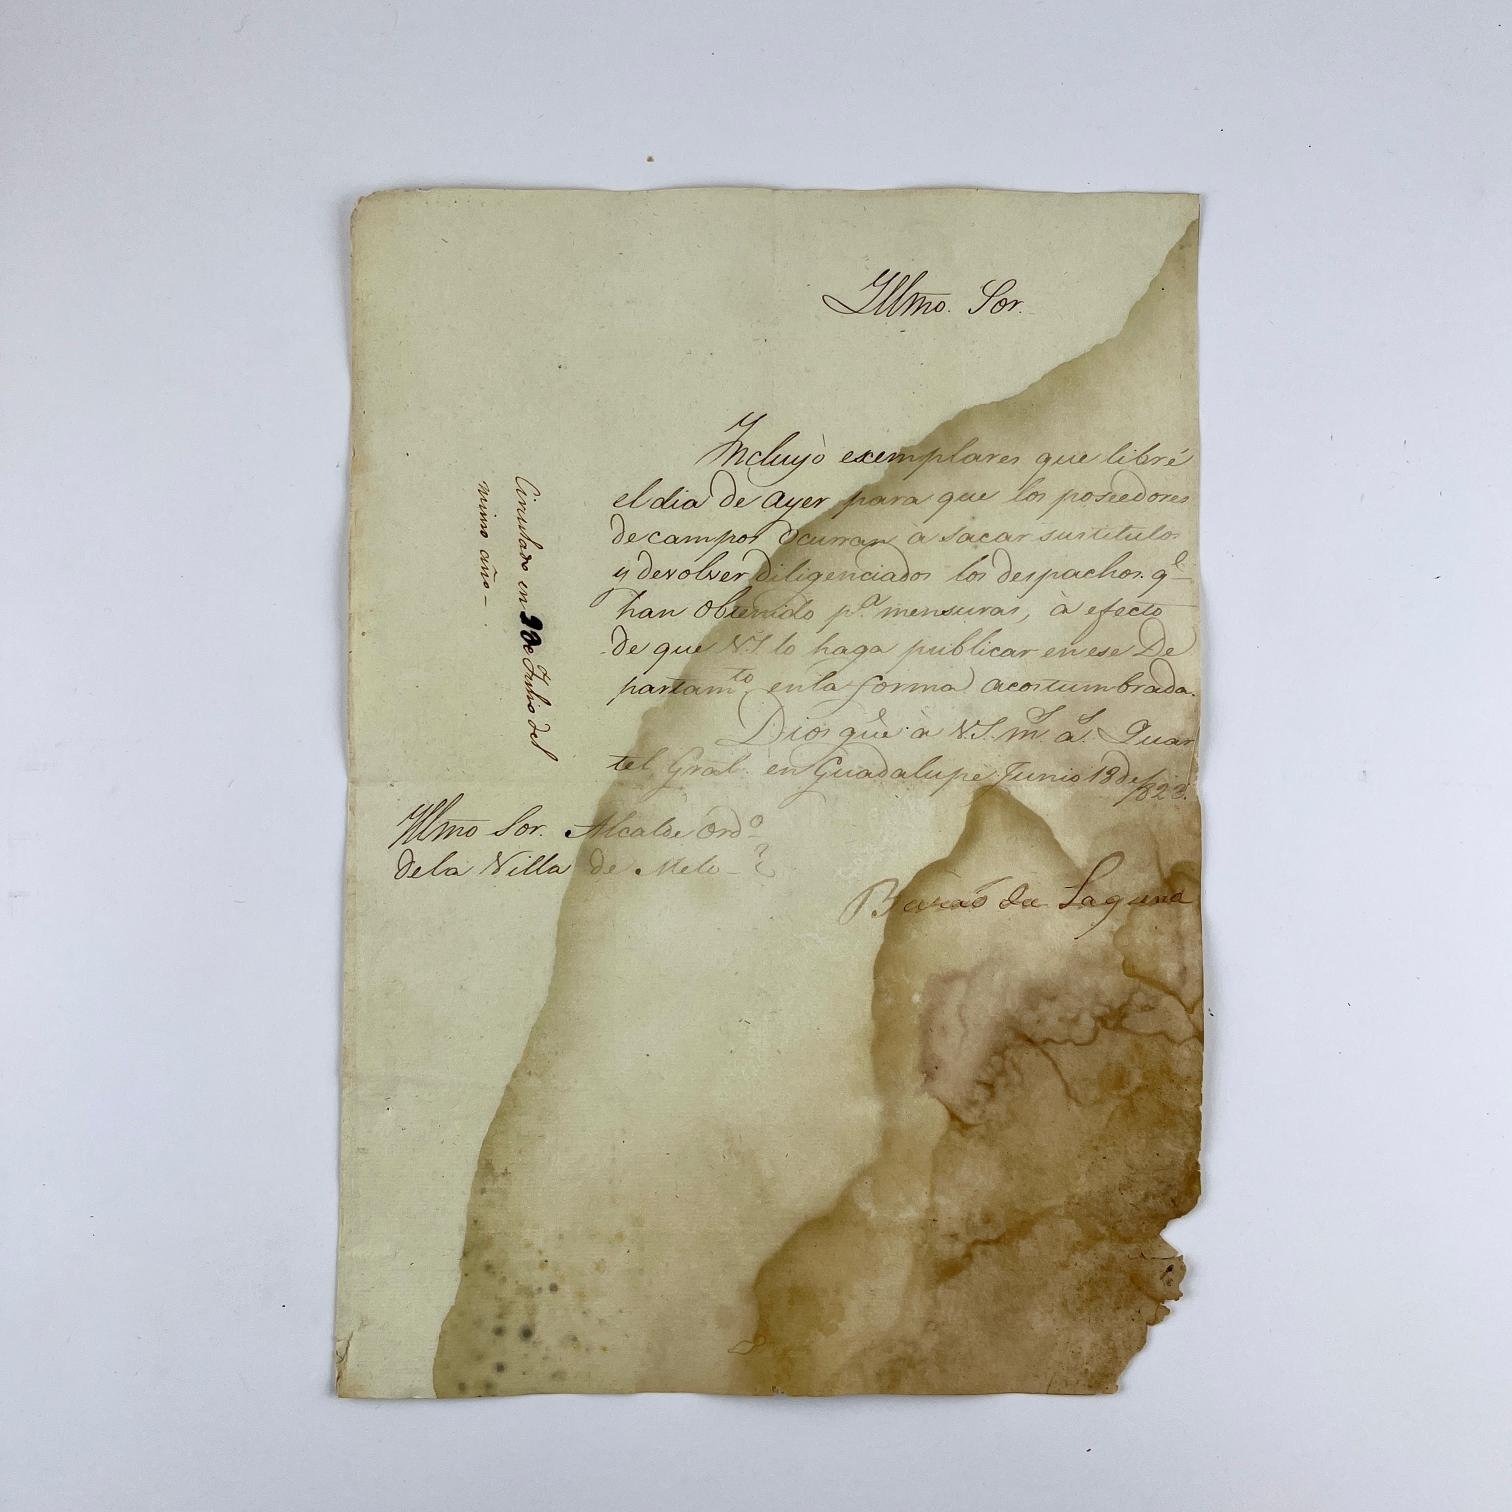 Yllmo. Sor.
Yncluyò exemplares que libré
el dia de ayer para que los poseedores
de campos ocurran à sacar sus titulos
y devolver diligenciados los despachos qe.
han obtenido pa. mensuras, à efecto
de que V.S. lo haga publicar en ese De
partamto. en la forma acostumbrada.
Dios gue. à V.S. ms. as. Quar
tel Gral. en Guadalupe Junio 13 de
1823.
Yllmo Sor. Alcalde Ordo.
de la Villa de Melo
Baraõ da Laguna
Circulado en de Julio del
mismo año